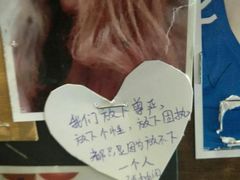 我们放下尊严
放下个性，放下固执
都只是因为放不下
一个人